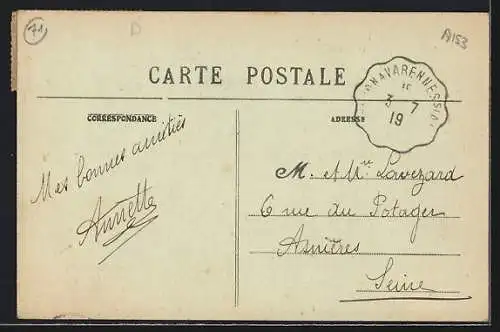 71
A153
CARTE POSTALE
CORRESPONDANCE
ADRESSE
A VARENNES
3 7
19
Mes bonnes amitiés
Annette
M. et Mme Lavezard
6 rue du Potager
Asnières
Seine